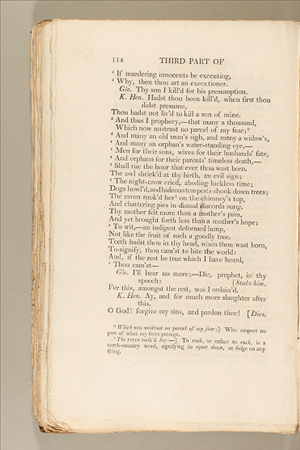 114 THIRD PART OF
‘ If murdering innocents be executing,
‘ Why, then thou art an executioner.
Glo. Thy son I kill'd for his presumption.
K. Hen. Hadst thou been kill'd, when first thou
didst presume,
Thou hadst not liv'd to kill a son of mine.
‘ And thus I prophecy,—that many a thousand,
Which now mistrust no parcel of my fear;
‘ And many an old man's sigh, and many a widow's,
‘ And many an orphan's water-standing eye,—
‘ Men for their sons, wives for their husbands' fate,
‘ And orphans for their parents' timeless death,—
‘ Shall rue the hour that ever thou wast born.
The owl shriek'd at thy birth, an evil sign;
‘ The night-crow cried, aboding luckless time;
Dogs howl'd, and hideous tempests shook down trees;
The raven rook'd her on the chimney's top,
And chattering pies in dismal discords sung.
Thy mother felt more than a mother's pain,
And yet brought forth less than a mother's hope;
‘ To wit,—an indigest deformed lump,
Not like the fruit of such a goodly tree.
Teeth hadst thou in thy head, when thou wast born,
To signify, thou cam'st to bite the world:
And, if the rest be true which I have heard,
‘ Thou cam'st—
Glo. I'll hear no more;—Die, prophet, in thy
speech; [Stabs him.
For this, amongst the rest, was I ordain'd.
K. Hen. Ay, and for much more slaughter after
this.
O God! forgive my sins, and pardon thee! [Dies.
Which now mistrust no parcel of my fear;] Who suspect no
part of what my fears presage.
The raven rook'd her—] To rook, or rather to ruck, is a
north-country word, signifying to squat down, or lodge on any
thing.